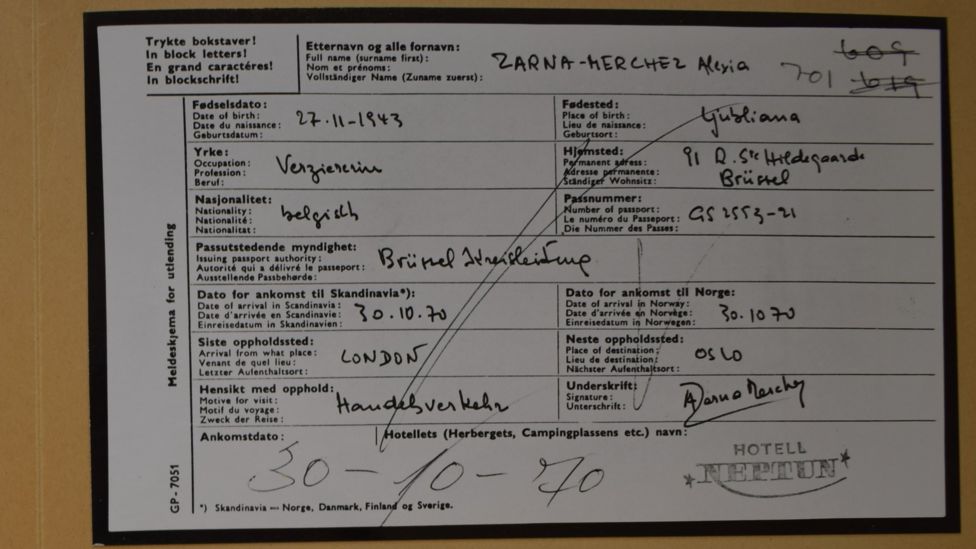 Trykte bokstaver!
In block letters!
En grand caractéres!
In blockschrift!
Etternavn og alle fornavn:
Full name (surname first):
Nom et prénoms:
Vollständiger Name (Zuname zuerst):
ZARNA-MERCHEZ Alexia
609
701 619
Fødselsdato:
Date of birth:
Date du naissance:
Geburtsdatum:
27.11-1943
Fødested:
Place of birth:
Lieu de naissance:
Geburtsort:
Ljubliana
Yrke:
Occupation:
Profession:
Beruf:
Verziererin
Hjemsted:
Permanent adress:
Adresse permanente:
Ständiger Wohnsitz:
91 R. Ste Hildegaarde
Brüssel
Nasjonalitet:
Nationality:
Nationalité:
Nationalitat:
belgisch
Passnummer:
Number of passport:
Le numéro du Passeport:
Die Nummer des Passes:
GS 2553-21
Passutstedende myndighet:
Issuing passport authority:
Autorité qui a délivré le passeport:
Ausstellende Passbehørde:
Brüssel Kreisleitung
Dato for ankomst til Skandinavia*):
Date of arrival in Scandinavia:
Date d'arrivée en Scandinavie:
Einreisedatum in Skandinavien:
30.10.70
Dato for ankomst til Norge:
Date of arrival in Norway:
Date d'arrivée en Norvège:
Einreisedatum in Norwegen:
30.10 70
Siste oppholdssted:
Arrival from what place:
Venant de quel lieu:
Letzter Aufenthaltsort:
LONDON
Neste oppholdssted:
Place of destination:
Lieu de destination:
Nächster Aufenthaltsort:
OSLO
Hensikt med opphold:
Motive for visit:
Motif du voyage:
Zweck der Reise:
Handelsverkehr
Underskrift:
Signature:
Unterschrift:
AZarna Merchez
Ankomstdato:
30-10-70
Hotellets (Herbergets, Campingplassens etc.) navn:
HOTELL
*NEPTUN*
*) Skandinavia = Norge, Danmark, Finland og Sverige.
Meldeskjema for utlending
GP - 7051